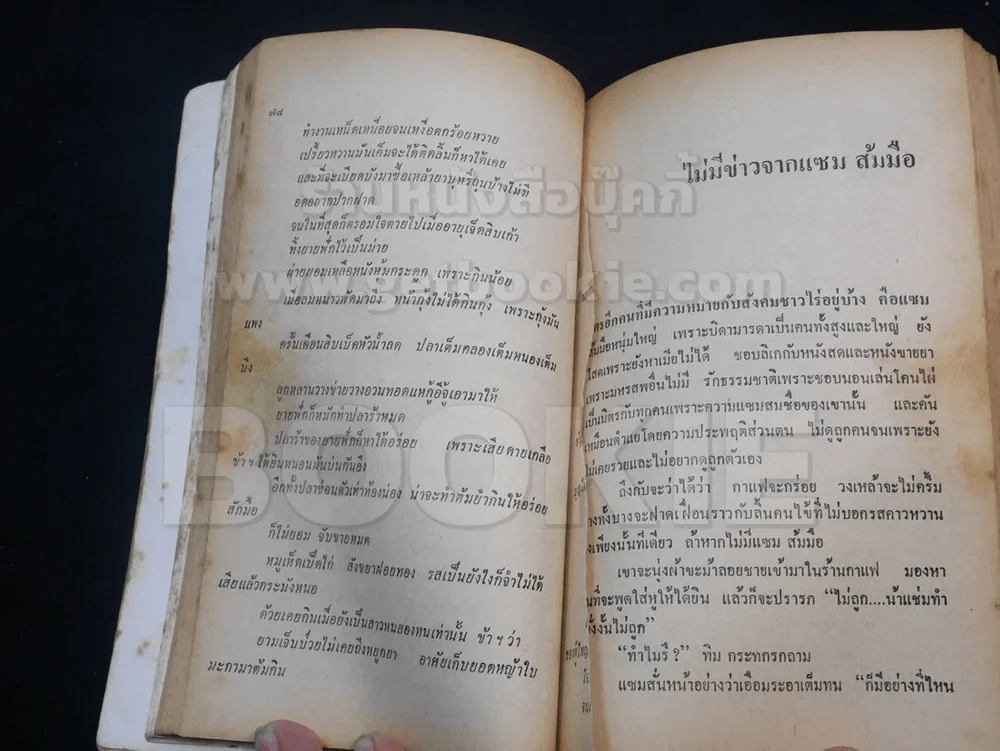 ๗๘
ทำงานเหน็ดเหนื่อยจนเหงื่อตกร้อยหวาย
เปรี้ยวหวานมันเค็มจะได้ติดลิ้นก็หาได้เคย
และที่จะเบียดบังมาซื้อเหล้ายาบุหรี่ฝุ่นบ้างไม่มี
อดอยากปากฝาด
จนในที่สุดก็ตรอมใจตายไปเมื่ออายุเจ็ดสิบเก้า
ทิ้งยายพักไว้เป็นม่าย
ผ่ายผอมเหลือหนังหุ้มกระดูก เพราะกินน้อย
เมื่อลมหนาวพัดมาถึง หน้ากุ้งไม่ได้กินกุ้ง เพราะกุ้งมัน
แพง
ครั้นเดือนสิบเบ็ดหัวน้ำลด ปลาเต็มคลองเต็มหนองเต็ม
บึง
ลูกหลานวางข่ายวางอวนทอดแหกู้อีจู้เอามาให้
ยายพักก็หมักทำปลาร้าหมด
ปลาร้าของยายพักก็หาได้อร่อย เพราะเสียดายเกลือ
ข้าฯได้ยินหนอนมันบ่นกันอึง
อีกทั้งปลาช่อนตัวเท่าท้องน่อง น่าจะทำต้มยำกินให้อร่อย
สักมื้อ
ก็ไม่ยอม จับขายหมด
หมูเห็ดเป็ดไก่ สังขยาฝอยทอง รสเป็นยังไงก็จำไม่ได้
เสียแล้วกระมังหนอ
ด้วยเคยกินเมื่อยังเป็นสาวหนสองหนเท่านั้น ข้าฯว่า
ยามเจ็บป่วยไม่เคยถึงหยูกยา อาศัยเก็บยอดหญ้าใบ
มะกามาต้มกิน
ไม่มีข่าวจากแซม ส้มมือ
ใครอีกคนที่มีความหมายกับสังคมชาวไร่อยู่บ้าง คือแซม
ส้มมือหนุ่มใหญ่ เพราะบิดามารดาเป็นคนทั้งสูงและใหญ่ ยัง
โสดเพราะยังหาเมียไม่ได้ ชอบลิเกกับหนังสดและหนังขายยา
เพราะมหรสพอื่นไม่มี รักธรรมชาติเพราะชอบนอนเล่นโคนไผ่
เป็นมิตรกับทุกคนเพราะความแซมสมชื่อของเขานั้น และคัน
เหมือนตำแยโดยความประพฤติส่วนตน ไม่ดูถูกคนจนเพราะยัง
ไม่เคยรวยและไม่อยากดูถูกตัวเอง
ถึงกับจะว่าได้ว่า กาแฟจะกร่อย วงเหล้าจะไม่ครึ้ม
างทั้งบางจะฝาดเฝื่อนราวกับลิ้นคนไข้ที่ไม่บอกรสคาวหวาน
งเพียงนั้นทีเดียว ถ้าหากไม่มีแซม ส้มมือ
เขาจะนุ่งผ้าขะม้าลอยชายเข้ามาในร้านกาแฟ มองหา
นที่จะพูดใส่หูให้ได้ยิน แล้วก็จะปรารภ “ไม่ถูก....น้าแช่มทำ
ยั่งงั้นไม่ถูก”
“ทำไมรึ?” ทิม กระทกรกถาม
แซมสั่นหน้าอย่างว่าเอื้อมระอาเต็มทน “ก็มีอย่างที่ไหน
ร้านหนังสือบุ๊คกี้
www.getbookie.com
BOOKIE